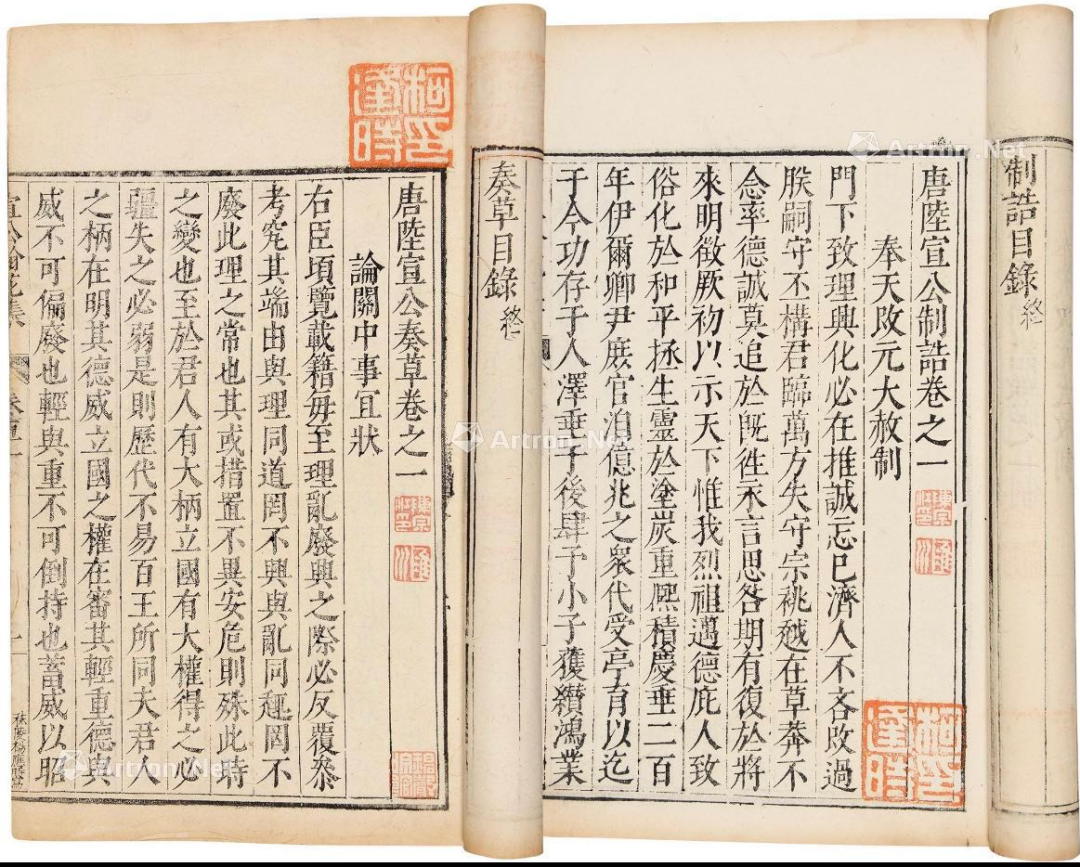 制誥目錄終
唐陸宣公制誥卷之一
奉天改元大赦制
門下致理興化必在推誠忘已濟人不吝改過
朕嗣守丕構君臨萬方失守宗祧越在草莽不
念率德誠莫追於既徃永言思咎期有復於將
來明徵厥初以示天下惟我烈祖邁德庇人致
俗化於和平拯生靈於塗炭重熈積慶垂二百
年伊爾卿尹庶官洎億兆之衆代受亭育以迄
于今功存于人澤垂于後肆予小子獲纘鴻業
奏草目錄終
唐陸宣公奏草卷之一
論關中事宜狀
右臣頃覽載籍每至理亂廢興之際必反覆叅
考究其端由與理同道罔不興與亂同趣罔不
廢此理之常也其或措置不異安危則殊此時
之變也至於君人有大柄立國有大權得之必
疆失之必弱是則歷代不易百王所同夫君人
之柄在明其德威立國之權在審其輕重德與
威不可偏廢也輕與重不可倒持也蓄威以昭
柯逢時印
柯逢時印
Artron.Net
Artron.Net
Artron.Net
Artron.Net